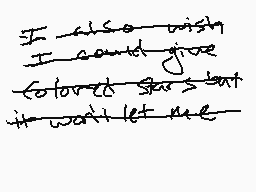 I also wish
I could give
colored stars but
it won't let me